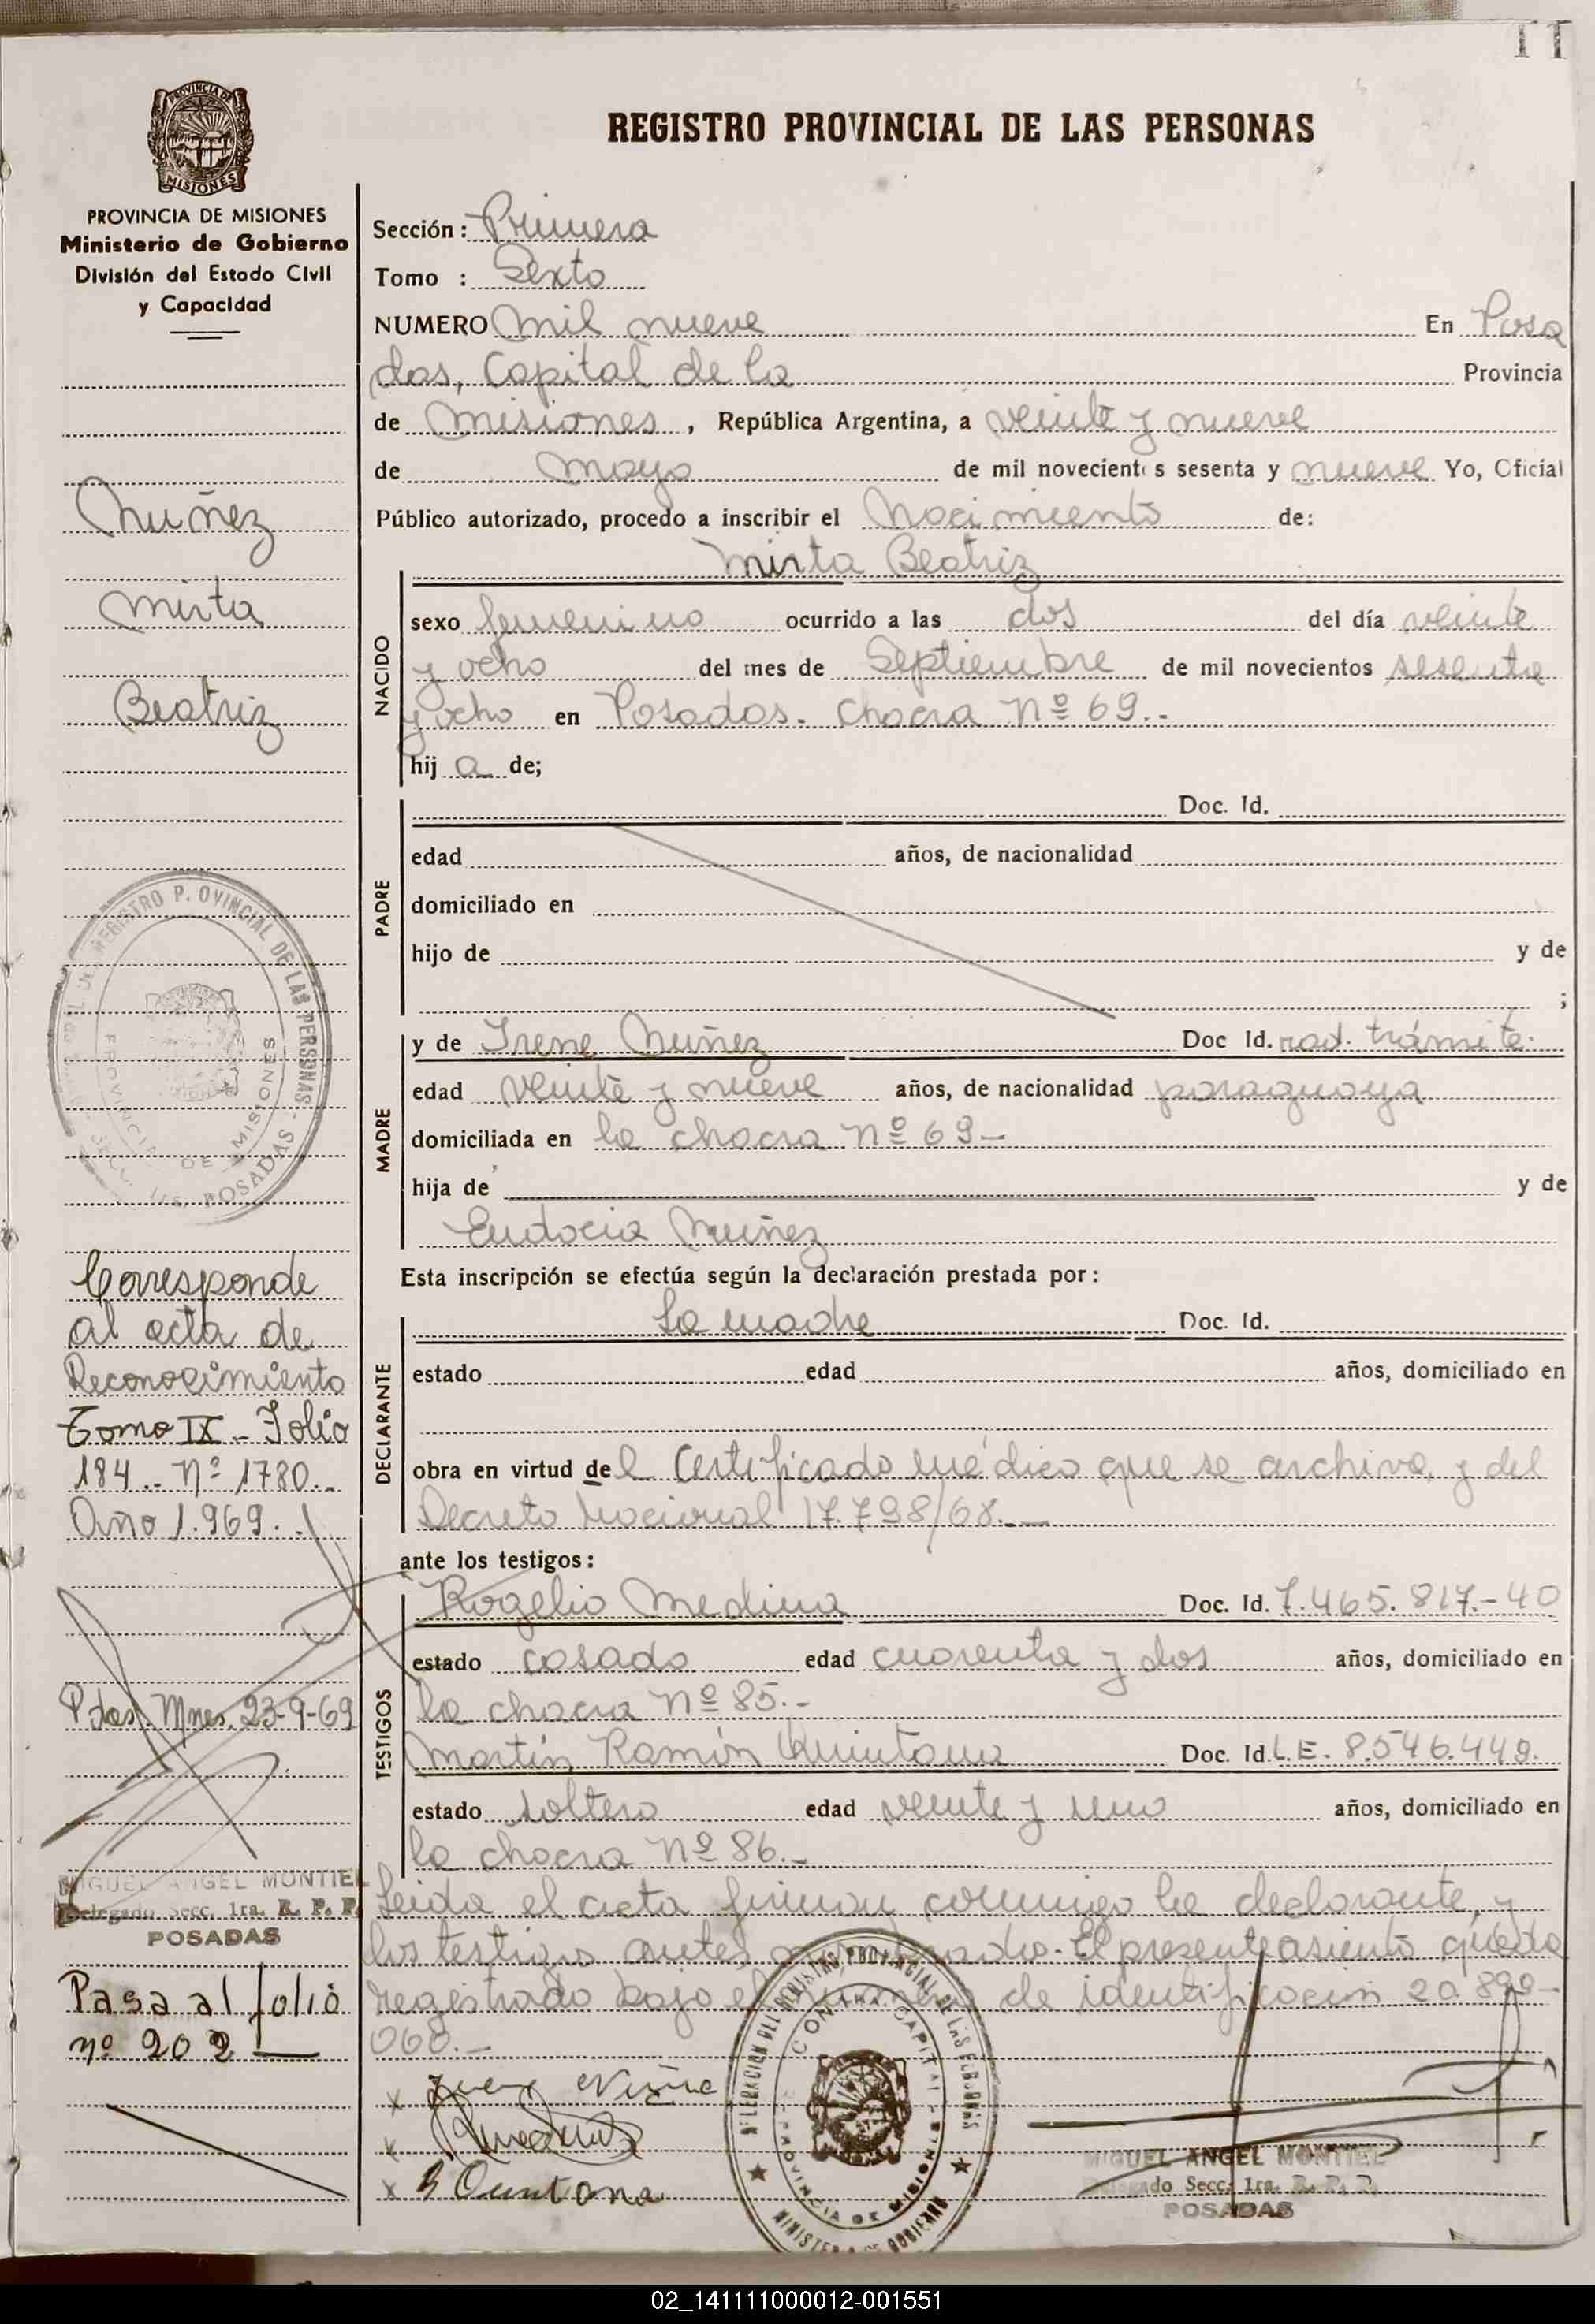 11
PROVINCIA DE
MISIONES
REGISTRO PROVINCIAL DE LAS PERSONAS
PROVINCIA DE MISIONES
Ministerio de Gobierno
División del Estado Civil
y Capacidad
Sección: Primera
Tomo : Sexto
NUMERO mil nueve En Posa
das, Capital de la Provincia
de Misiones, República Argentina, a veinte y nueve
de mayo de mil novecientos sesenta y nueve Yo, Oficial
Público autorizado, procedo a inscribir el Nacimiento de:
Nuñez
Mirta
Beatriz
NACIDO
Mirta Beatriz
sexo femenino ocurrido a las dos del día veinte
y ocho del mes de Septiembre de mil novecientos sesenta
y ocho en Posadas. Chacra Nº 69.-
hij a de;
PADRE
Doc. Id.
edad años, de nacionalidad
domiciliado en
hijo de y de
;
MADRE
y de Irene Nuñez Doc Id. rad. trámite.
edad veinte y nueve años, de nacionalidad paraguaya
domiciliada en la chacra Nº 69-
hija de y de
Eudocia Nuñez
REGISTRO P. OVINCIAL DE LAS PERSONAS - POSADAS -
PROVINCIA DE MISIONES
Esta inscripción se efectúa según la declaración prestada por:
DECLARANTE
La madre Doc. Id.
estado edad años, domiciliado en
obra en virtud del Certificado médico que se archiva, y del
Decreto Nacional 17.798/68.-
Corresponde
al acta de
Reconocimiento
Tomo IX - Folio
184.- Nº 1780.-
Año 1.969.
ante los testigos:
TESTIGOS
Rogelio Medina Doc. Id. 7.465.817.-40
estado casado edad cuarenta y dos años, domiciliado en
la chacra Nº 85.-
Martín Ramón Quintana Doc. Id. L.E. 8.546.449.
estado soltero edad veinte y uno años, domiciliado en
la chacra Nº 86.-
Pdas. Mnes. 23-9-69
MIGUEL ANGEL MONTIEL
Delegado Secc. 1ra. R. P. P.
POSADAS
Pasa al folio
nº 202
Leida el acta firman conmigo la declarante, y
los testigos antes. El presente asiento queda
registrado bajo el de identificación 20.899-
068.-
x Irene Nuñez
x
x Quintana
CONTRA CAPITAL
PROVINCIA DE MISIONES
MINISTERIO DE GOBIERNO
MIGUEL ANGEL MONTIEL
Delegado Secc. 1ra. R. P. P.
POSADAS
02_141111000012-001551